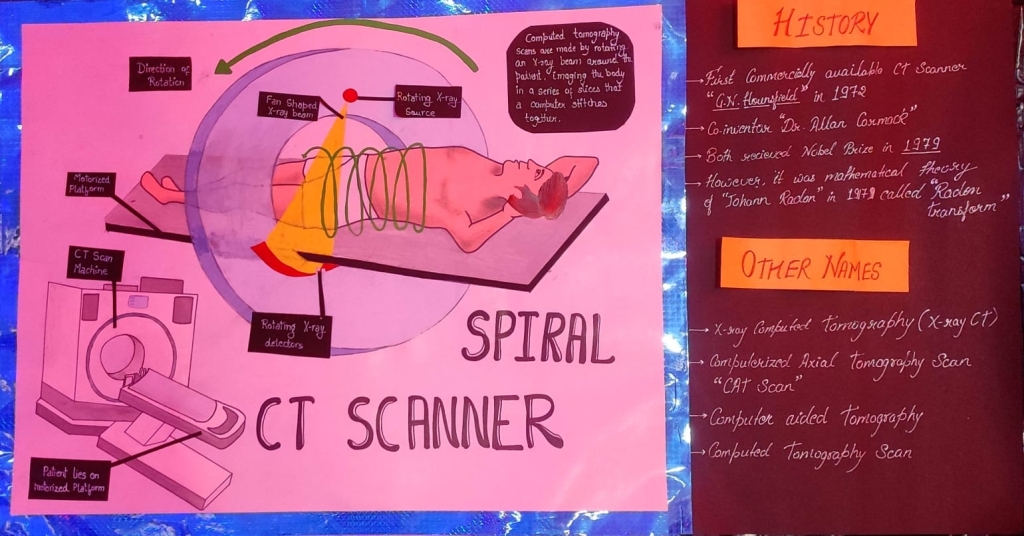 Direction of
Rotation
Fan Shaped
X-ray beam
Rotating X-ray
Source
Computed tomography
scans are made by rotating
an X-ray beam around the
patient, Imaging the body
in a series of slices that
a computer stitches
together.
Motorized
Platform
CT Scan
Machine
Rotating X-ray
detectors
Patient lies on
motorized Platform
SPIRAL
CT SCANNER
HISTORY
→ First Commercially available CT Scanner
"G.N. Hounsfield" in 1972
→ Co-inventor "Dr. Allan Cormack"
→ Both recieved Nobel Prize in 1979
→ However, it was mathematical theory
of "Johann Radon" in called "Radon
transform"
OTHER NAMES
→ X-ray Computed Tomography (X-ray CT)
→ Computerized Axial Tomography Scan
"CAT Scan"
→ Computer aided Tomography
→ Computed Tomography Scan